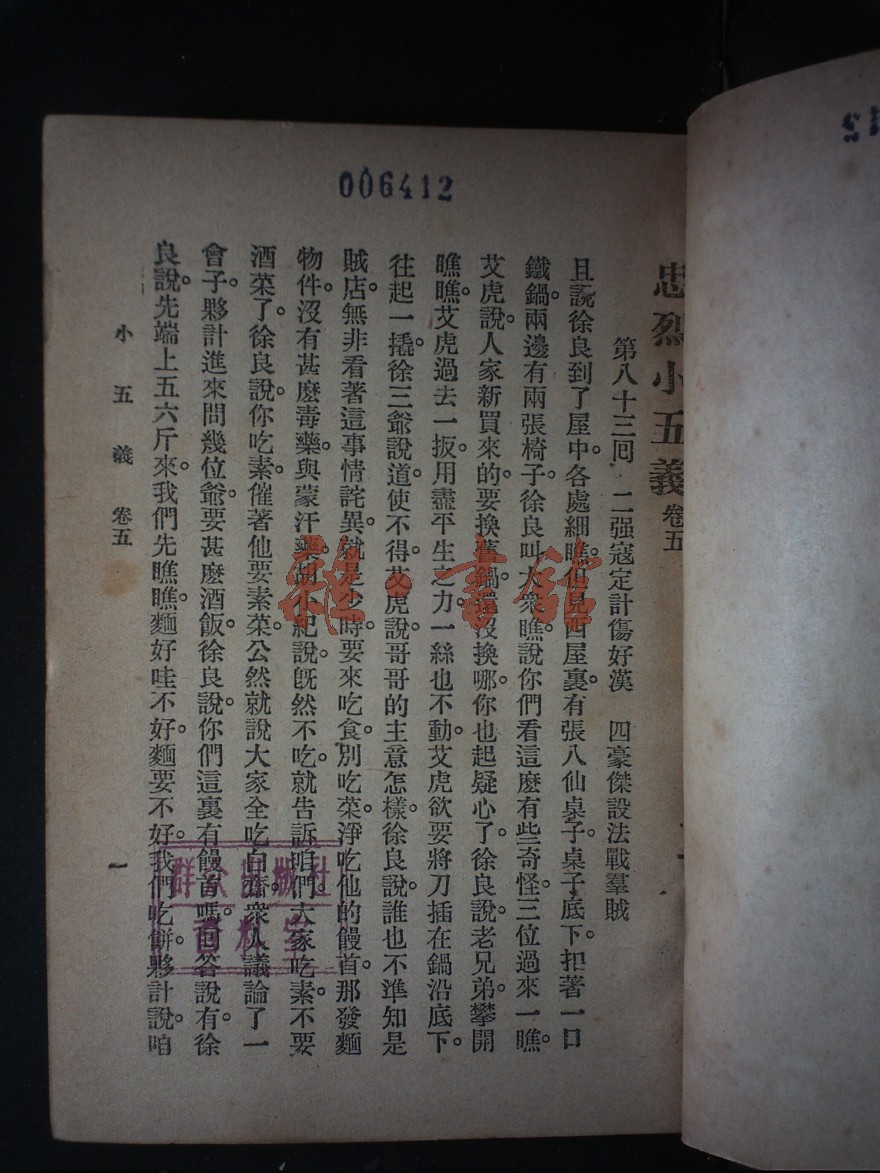 006412
忠烈小五義 卷五
第八十三囘 二强寇定計傷好漢 四豪傑設法戰羣賊
且說徐良到了屋中。各處細瞧。但見西屋裏。有張八仙桌子。桌子底下。扣著一口
鐵鍋。兩邊有兩張椅子。徐良叫大衆瞧。說你們看這麽有些奇怪。三位過來一瞧。
艾虎說。人家新買來的。要換舊鍋。還沒換哪。你也起疑心了。徐良說。老兄弟。攀開
瞧瞧。艾虎過去一扳。用盡平生之力。一絲也不動。艾虎欲要將刀插在鍋沿底下。
往起一撬。徐三爺說道。使不得。艾虎說。哥哥的主意怎樣。徐良說。誰也不準知是
賊店。無非看著這事情詫異。就是少時。要來吃食。別吃菜。淨吃他的饅首。那發麵
物件。沒有甚麽毒藥。與蒙汗藥。胡小紀說。旣然不吃。就告訴咱們。大家吃素。不要
酒菜了。徐良說。你吃素。催著他要素菜。公然就說大家全吃白齋。衆人議論了一
會子。夥計進來問幾位爺。要甚麽酒飯。徐良說。你們這裏有饅首嗎。囘答說有。徐
良說。先端上五六斤來。我們先瞧瞧。麵好哇不好。麵要不好。我們吃餅。夥計說。咱
小五義 卷五 一
群众出版社
資料室
雜·書館